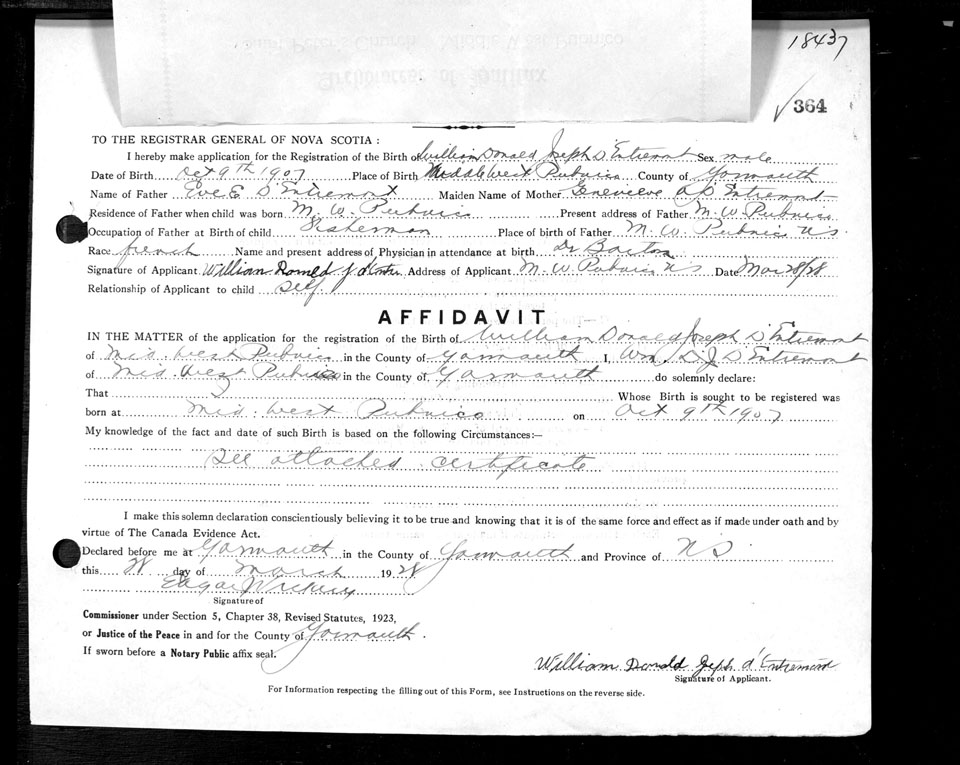 18437
364
TO THE REGISTRAR GENERAL OF NOVA SCOTIA :
I hereby make application for the Registration of the Birth of William Donald Joseph D'Entremont Sex male
Date of Birth Oct 9th 1907 Place of Birth Middle West Pubnico County of Yarmouth
Name of Father E. D'Entremont Maiden Name of Mother Genevieve D'Entremont
Residence of Father when child was born M. W. Pubnico Present address of Father M. W. Pubnico
Occupation of Father at Birth of child Fisherman Place of birth of Father M. W. Pubnico N S.
Race french Name and present address of Physician in attendance at birth Dr
Signature of Applicant William J d'Entre Address of Applicant M. W. Pubnico N S Date Mar 28/28
Relationship of Applicant to child Self
AFFIDAVIT
IN THE MATTER of the application for the registration of the Birth of William Donald Joseph D'Entremont
of Mid. West Pubnico in the County of Yarmouth I, Wm. D. J D'Entremont
of Mid. West Pubnico in the County of Yarmouth do solemnly declare:
That Whose Birth is sought to be registered was
born at Mid. West Pubnico on Oct 9th 1907
My knowledge of the fact and date of such Birth is based on the following Circumstances:—
See attached certificate
I make this solemn declaration conscientiously believing it to be true and knowing that it is of the same force and effect as if made under oath and by
virtue of The Canada Evidence Act.
Declared before me at Yarmouth in the County of Yarmouth and Province of N S
this 28 day of March 1928
Edgar
Signature of
Commissioner under Section 5, Chapter 38, Revised Statutes, 1923,
or Justice of the Peace in and for the County of Yarmouth.
If sworn before a Notary Public affix seal.
William Donald Joseph d'Entremont
Signature of Applicant.
For Information respecting the filling out of this Form, see Instructions on the reverse side.